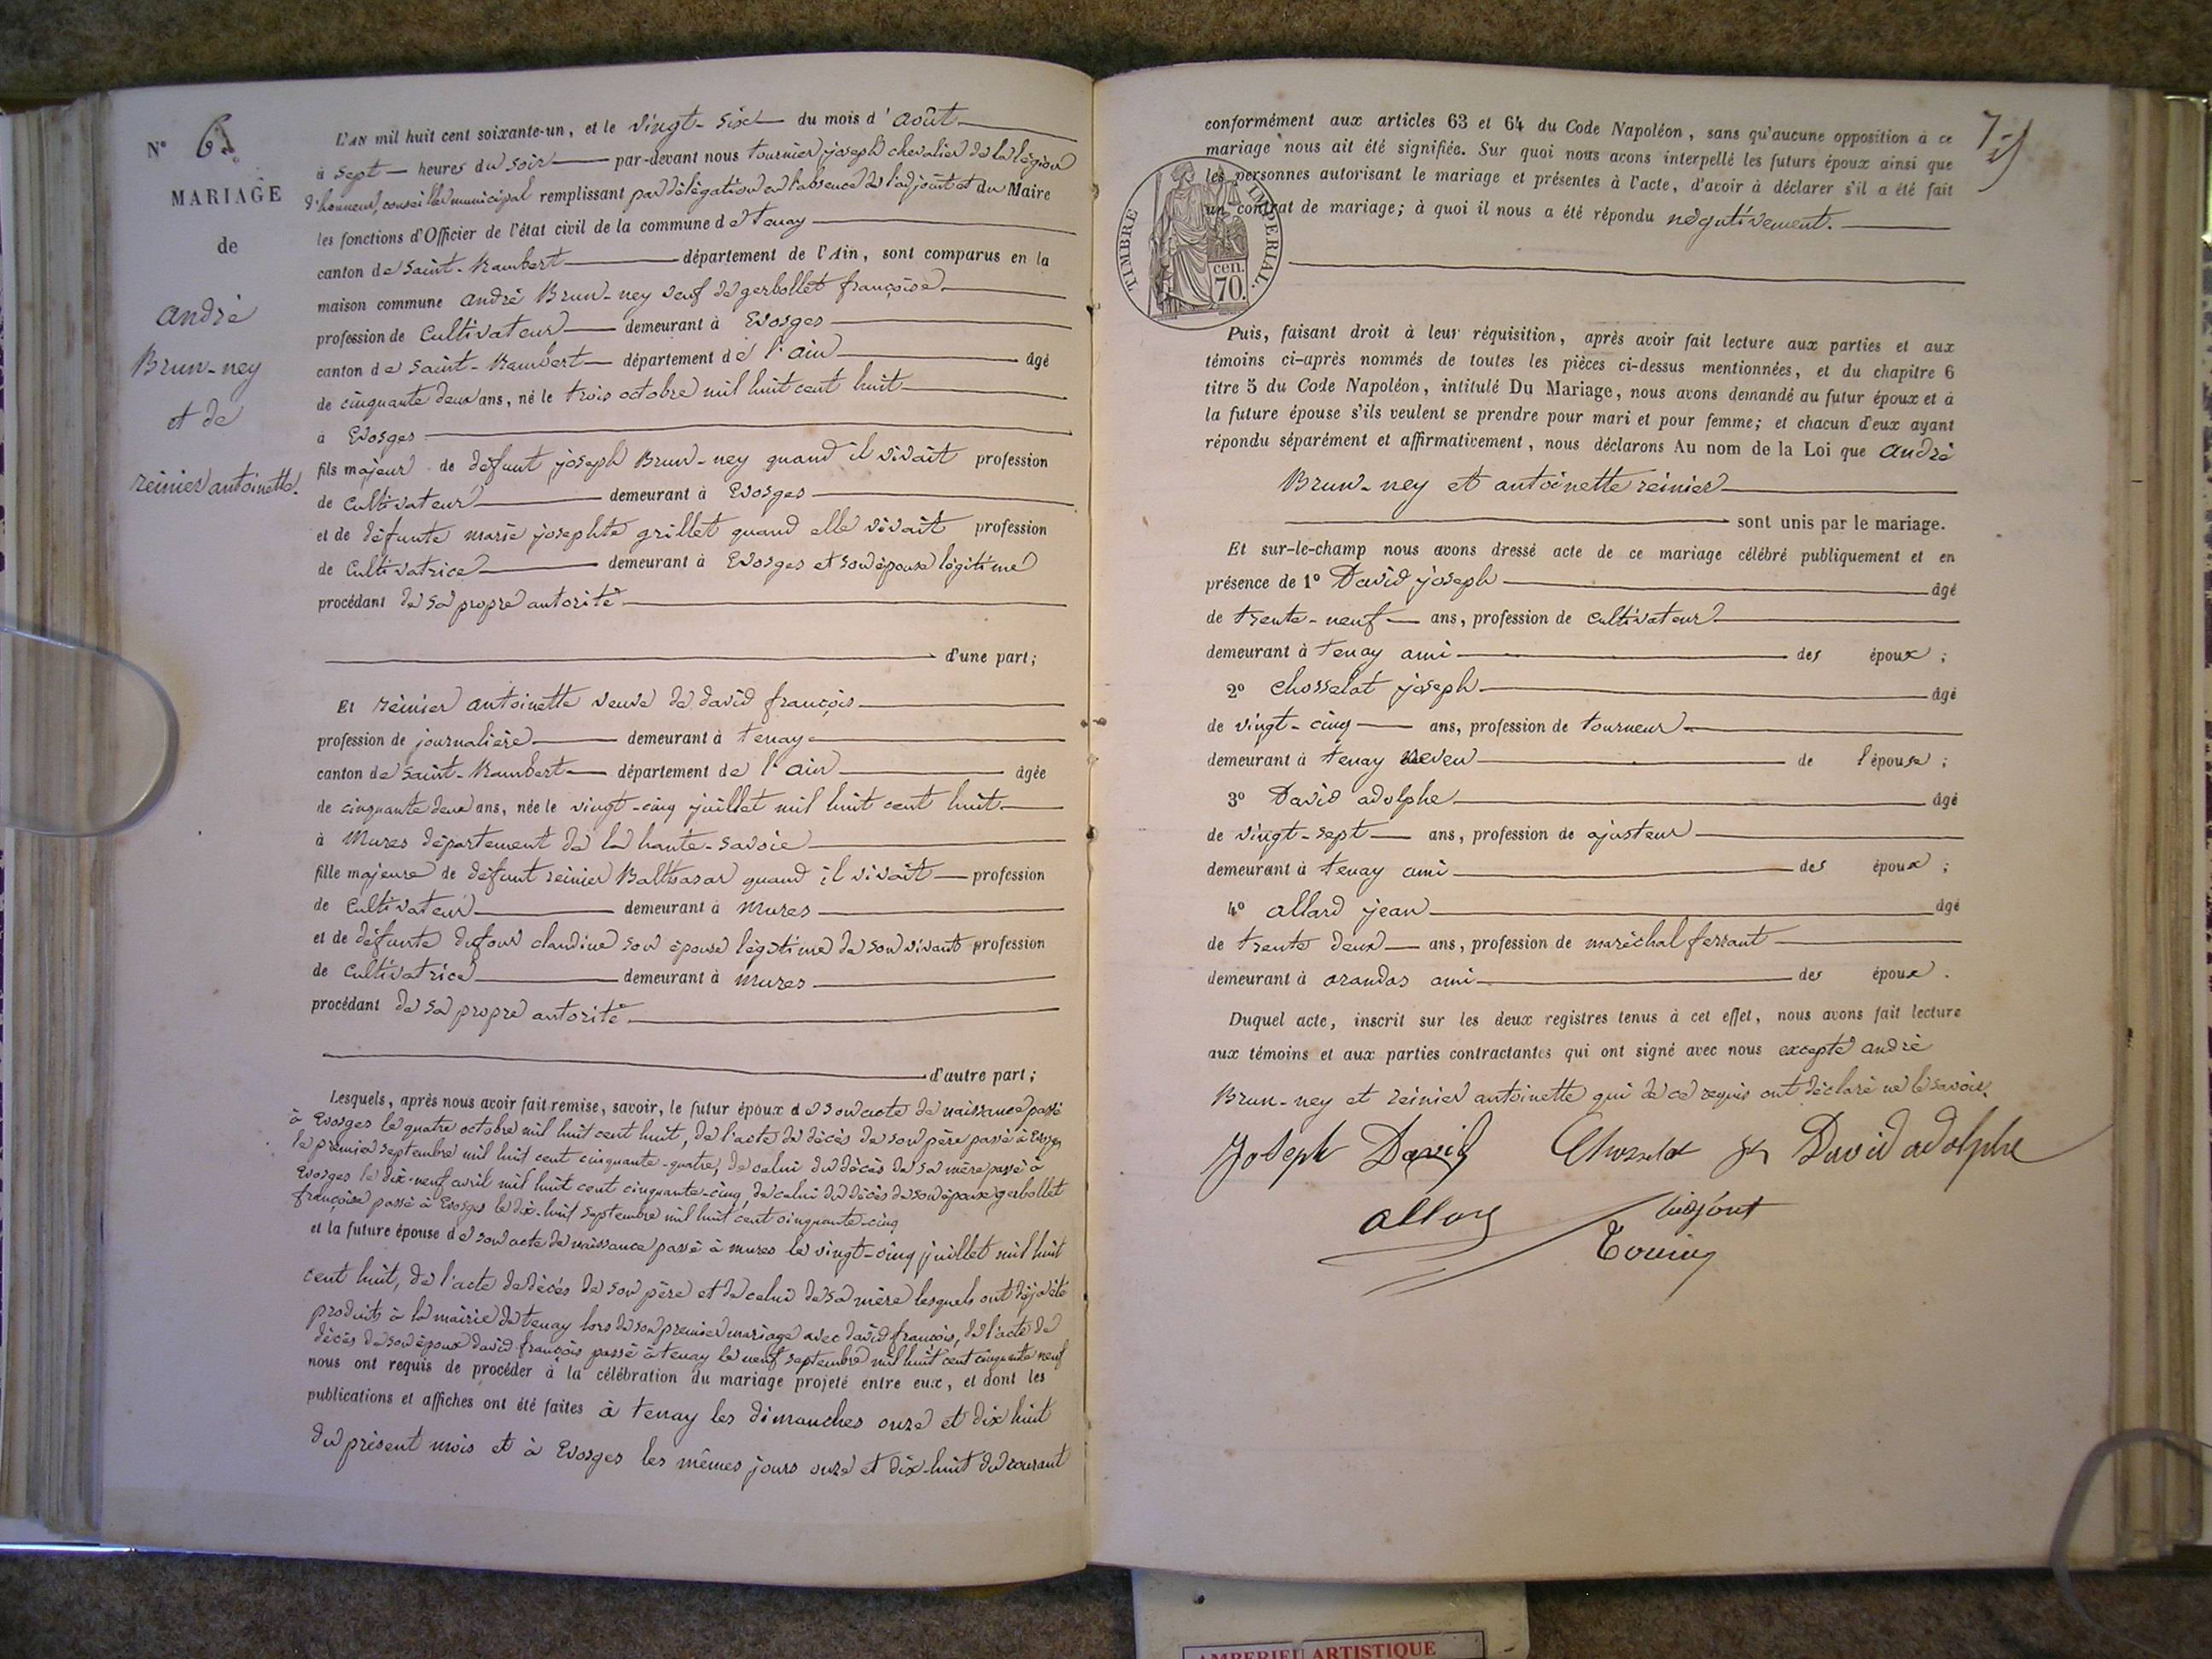 N° 6.
MARIAGE
de
andré
Brun-ney
et de
reinier antoinette.
L'AN mil huit cent soixante-un, et le vingt-six du mois d'août
à sept heures du soir par-devant nous tournier joseph chevalier de la légion
d'honneur, conseiller municipal remplissant par délégation en l'absence de l'adjoint et du Maire
les fonctions d'Officier de l'état civil de la commune de tenay
canton de saint-Rambert département de l'Ain, sont comparus en la
maison commune andré Brun-ney veuf de gerbollet françoise
profession de cultivateur demeurant à Evosges
canton de saint-Rambert département de l'ain âgé
de cinquante deux ans, né le trois octobre mil huit cent huit
à Evosges
fils majeur de défunt joseph Brun-ney quand il vivait profession
de cultivateur demeurant à Evosges
et de défunte marie josephte grillet quand elle vivait profession
de cultivatrice demeurant à Evosges et son épouse légitime
procédant de sa propre autorité
d'une part;
Et reinier antoinette veuve de david françois
profession de journalière demeurant à tenay
canton de saint-Rambert département de l'ain âgée
de cinquante deux ans, née le vingt-cinq juillet mil huit cent huit
à Mures département de la haute-savoie
fille majeure de défunt reinier Balthasar quand il vivait profession
de cultivateur demeurant à Mures
et de défunte dufour claudine son épouse légitime de son vivant profession
de cultivatrice demeurant à Mures
procédant de sa propre autorité
d'autre part;
Lesquels, après nous avoir fait remise, savoir, le futur époux de son acte de naissance passé
à Evosges le quatre octobre mil huit cent huit, de l'acte de décès de son père passé à Evosges
le premier septembre mil huit cent cinquante-quatre, de celui du décès de sa mère passé à
Evosges le dix-neuf avril mil huit cent cinquante-cinq, de celui du décès de son épouse gerbollet
françoise passé à Evosges le dix-huit septembre mil huit cent cinquante-cinq
et la future épouse de son acte de naissance passé à mures le vingt-cinq juillet mil huit
cent huit, de l'acte de décès de son père et de celui de sa mère lesquels ont déjà été
produits à la mairie de tenay lors de son premier mariage avec david françois, de l'acte de
décès de son époux david françois passé à tenay le neuf septembre mil huit cent cinquante neuf
nous ont requis de procéder à la célébration du mariage projeté entre eux, et dont les
publications et affiches ont été faites à tenay les dimanches onze et dix huit
du présent mois et à Evosges les mêmes jours onze et dix-huit du courant
conformément aux articles 63 et 64 du Code Napoléon, sans qu'aucune opposition à ce
mariage nous ait été signifiée. Sur quoi nous avons interpellé les futurs époux ainsi que
les personnes autorisant le mariage et présentes à l'acte, d'avoir à déclarer s'il a été fait
un contrat de mariage; à quoi il nous a été répondu négativement.
TIMBRE IMPERIAL.
cen.
70.
Puis, faisant droit à leur réquisition, après avoir fait lecture aux parties et aux
témoins ci-après nommés de toutes les pièces ci-dessus mentionnées, et du chapitre 6
titre 5 du Code Napoléon, intitulé Du Mariage, nous avons demandé au futur époux et à
la future épouse s'ils veulent se prendre pour mari et pour femme; et chacun d'eux ayant
répondu séparément et affirmativement, nous déclarons Au nom de la Loi que andré
Brun-ney et antoinette reinier
sont unis par le mariage.
Et sur-le-champ nous avons dressé acte de ce mariage célébré publiquement et en
présence de 1° David joseph âgé
de trente-neuf ans, profession de cultivateur
demeurant à tenay ami des époux ;
2° chosselat joseph âgé
de vingt-cinq ans, profession de tourneur
demeurant à tenay neveu de l'épouse ;
3° David adolphe âgé
de vingt-sept ans, profession de ajusteur
demeurant à tenay ami des époux ;
4° allard jean âgé
de trente deux ans, profession de maréchal ferrant
demeurant à arandas ami des époux .
Duquel acte, inscrit sur les deux registres tenus à cet effet, nous avons fait lecture
aux témoins et aux parties contractantes qui ont signé avec nous excepté andré
Brun-ney et reinier antoinette qui de ce requis ont déclaré ne le savoir.
Joseph David David adolphe
AMBERIEU ARTISTIQUE